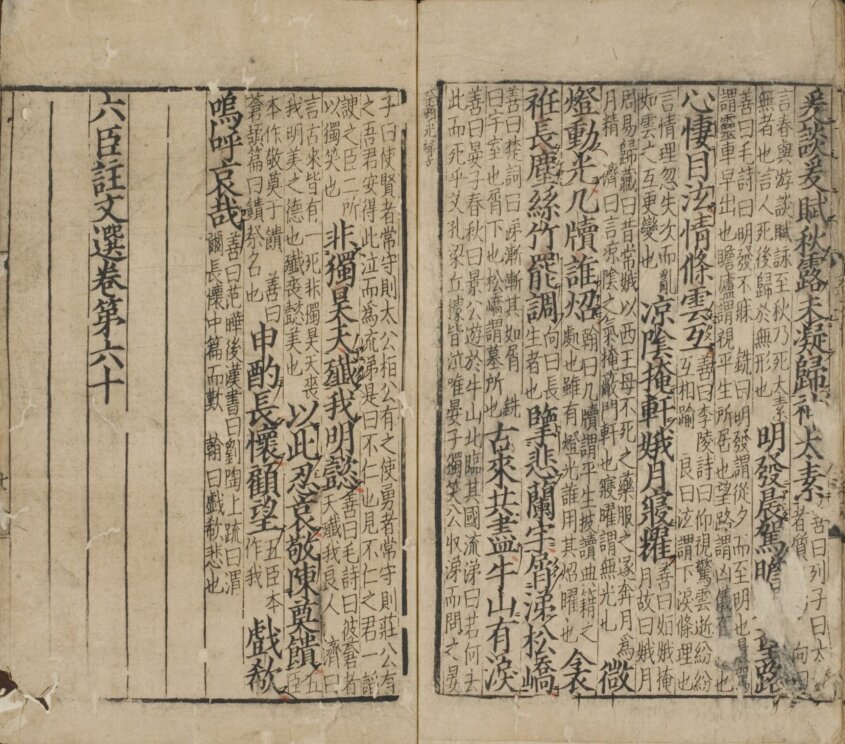 爰談爰賦秋露未凝歸神太素善曰列子曰太素者質 向曰
言春與游談賦詠至秋乃死太素無者也言人死後歸於無形也明發晨駕瞻望路
善曰毛詩曰明發不寐 銑曰明發謂從夕而至明也晨駕謂靈車早出也瞻廬謂視平生所居也望路謂凶儀在
心悽目泫情條雲互善曰李陵詩曰仰視驚雲逝紛紛互相踰 良曰泫謂下淚條理也
言情理忽失次而亂如雲之互更變也涼陰掩軒娥月寢耀善曰姮娥掩月故曰娥月
周易歸藏曰昔常娥以西王母不死之藥服之遂奔月為月精 濟曰言涼陰之氣掩蔽門軒也寢曜謂無光也微
燈動光几牘誰炤翰曰几牘謂平生披讀典籍之處也雖有燈光誰用其炤曜也衾
袵長塵絲竹罷調向曰長生者也擥悲蘭宇屑涕松嶠
善曰楚詞曰涕漸漸其如屑 銑曰宇室也屑下也松嶠謂墓所也古來共盡牛山有淚
善曰晏子春秋曰景公遊於牛山北臨其國流涕曰若何去此而死乎艾孔梁丘據皆泣唯晏子獨笑公收涕而問之晏
子曰使賢者常守則太公桓公有之使勇者常守則莊公有之吾君安得此泣而為流涕是曰不仁也見不仁之君一謟
諛之臣二所以獨笑也非獨昊天殲我明懿善曰毛詩曰彼蒼者天殲我良人 濟曰
言古來皆有一死非獨昊天喪我明美之德也殲喪懿美也以此忍哀敬陳奠饋五臣
本作敬奠于饋 善曰蒼頡篇曰饋祭名也申酌長懷顧望五臣本作我歔欷
嗚呼哀哉善曰范曄後漢書曰劉陶上疏曰渭爾長懷中篇而歎 翰曰歔欷悲也
六臣註文選卷第六十